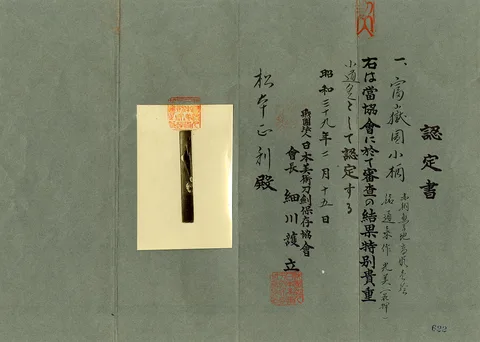 認定書
一、富嶽図小柄
右は當協會に於て審査の結果特別貴重
小道具として認定する
昭和三十九年二月十五日
財團法人日本美術刀劍保存協會
會長 細川護立
松本正利殿
622